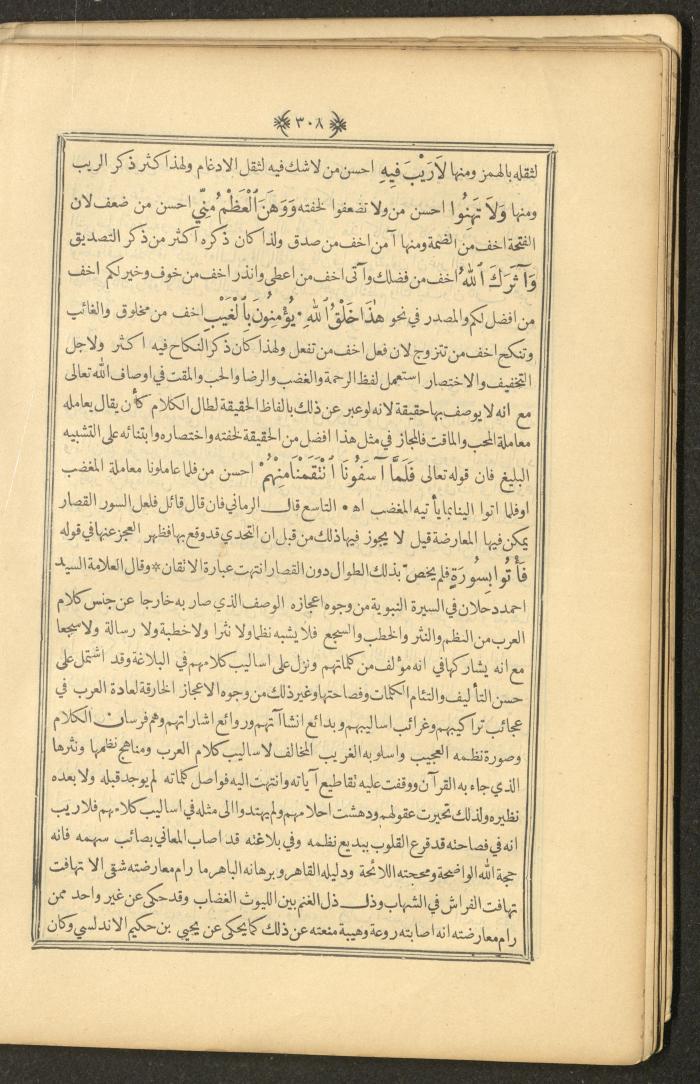 ٣٠٨
لثقله بالهمز ومنها لَارَيْبَ فِيهِ احسن من لاشك فيه لثقل الادغام ولهذا كثر ذكر الريب
ومنها وَلَا تَهِنُوا احسن من ولا تضعفوا لخفته وَوَهَنَ ٱلْعَظْمُ مِنِّي احسن من ضعف لان
الفتحة اخف من الضمة ومنها آمن اخف من صدق ولذا كان ذكره اكثر من ذكر التصديق
وَآثَرَكَ ٱللهُ اخف من فضلك وآتى اخف من اعطى وانذر اخف من خوف وخير لكم اخف
من افضل لكم والمصدر في نحو هٰذَا خَلْقُ ٱللهِ ۰ يُؤْمِنُونَ بِٱلْغَيْبِ اخف من مخلوق والغائب
وتنكح اخف من تتزوج لان فعل اخف من تفعل ولهذا كان ذكر النكاح فيه اكثر ولاجل
التخفيف والاختصار استعمل لفظ الرحمة والغضب والرضا والحب والمقت في اوصاف الله تعالى
مع انه لا يوصف بها حقيقة لانه لو عبر عن ذلك بالفاظ الحقيقة لطال الكلام كأن يقال يعامله
معاملة المحب والماقت فالمجاز في مثل هذا افضل من الحقيقة لخفته واختصاره وابتنائه على التشبيه
البليغ فان قوله تعالى فَلَمَّا آسَفُونَا ٱنْتَقَمْنَا مِنْهُمْ احسن من فلما عاملونا معاملة المغضب
اوفلما اتوا الينا بما يأتيه المغضب اه ۰ التاسع قال الرماني فان قال قائل فلعل السور القصار
يمكن فيها المعارضة قيل لا يجوز فيها ذلك من قبل ان التحدي قد وقع بها فظهر العجز عنها في قوله
فَأْتُوا بِسُورَةٍ فلم يخص بذلك الطوال دون القصار انتهت عبارة الاتقان * وقال العلامة السيد
احمد دحلان في السيرة النبوية من وجوه اعجازه الوصف الذي صار به خارجا عن جنس كلام
العرب من النظم والنثر والخطب والسجع فلا يشبه نظما ولا نثرا ولا خطبة ولا رسالة ولا سجعا
مع انه يشاركها في انه مؤلف من كلماتهم ونزل على اساليب كلامهم في البلاغة وقد اشتمل على
حسن التأليف والتئام الكلمات وفصاحتها وغير ذلك من وجوه الاعجاز الخارقة لعادة العرب في
عجائب تراكيبهم وغرائب اساليبهم وبدائع انشاآتهم وروائع اشاراتهم وهم فرسان الكلام
وصورة نظمه العجيب واسلوبه الغريب المخالف لاساليب كلام العرب ومناهج نظمها ونثرها
الذي جاء به القرآن ووقفت عليه تقاطيع آياته وانتهت اليه فواصل كلماته لم يوجد قبله ولا بعده
نظيره ولذلك تحيرت عقولهم ودهشت احلامهم ولم يهتدوا الى مثله في اساليب كلامهم فلا ريب
انه في فصاحته قد قرع القلوب ببديع نظمه وفي بلاغته قد اصاب المعاني بصائب سهمه فانه
حجة الله الواضحة ومحجته اللائحة ودليله القاهر وبرهانه الباهر ما رام معارضته شقى الا تهافت
تهافت الفراش في الشهاب وذل ذل الغنم بين الليوث الغضاب وقد حكى عن غير واحد ممن
رام معارضته انه اصابته روعة وهيبة منعته عن ذلك كما يحكى عن يحيى بن حكيم الاندلسي وكان